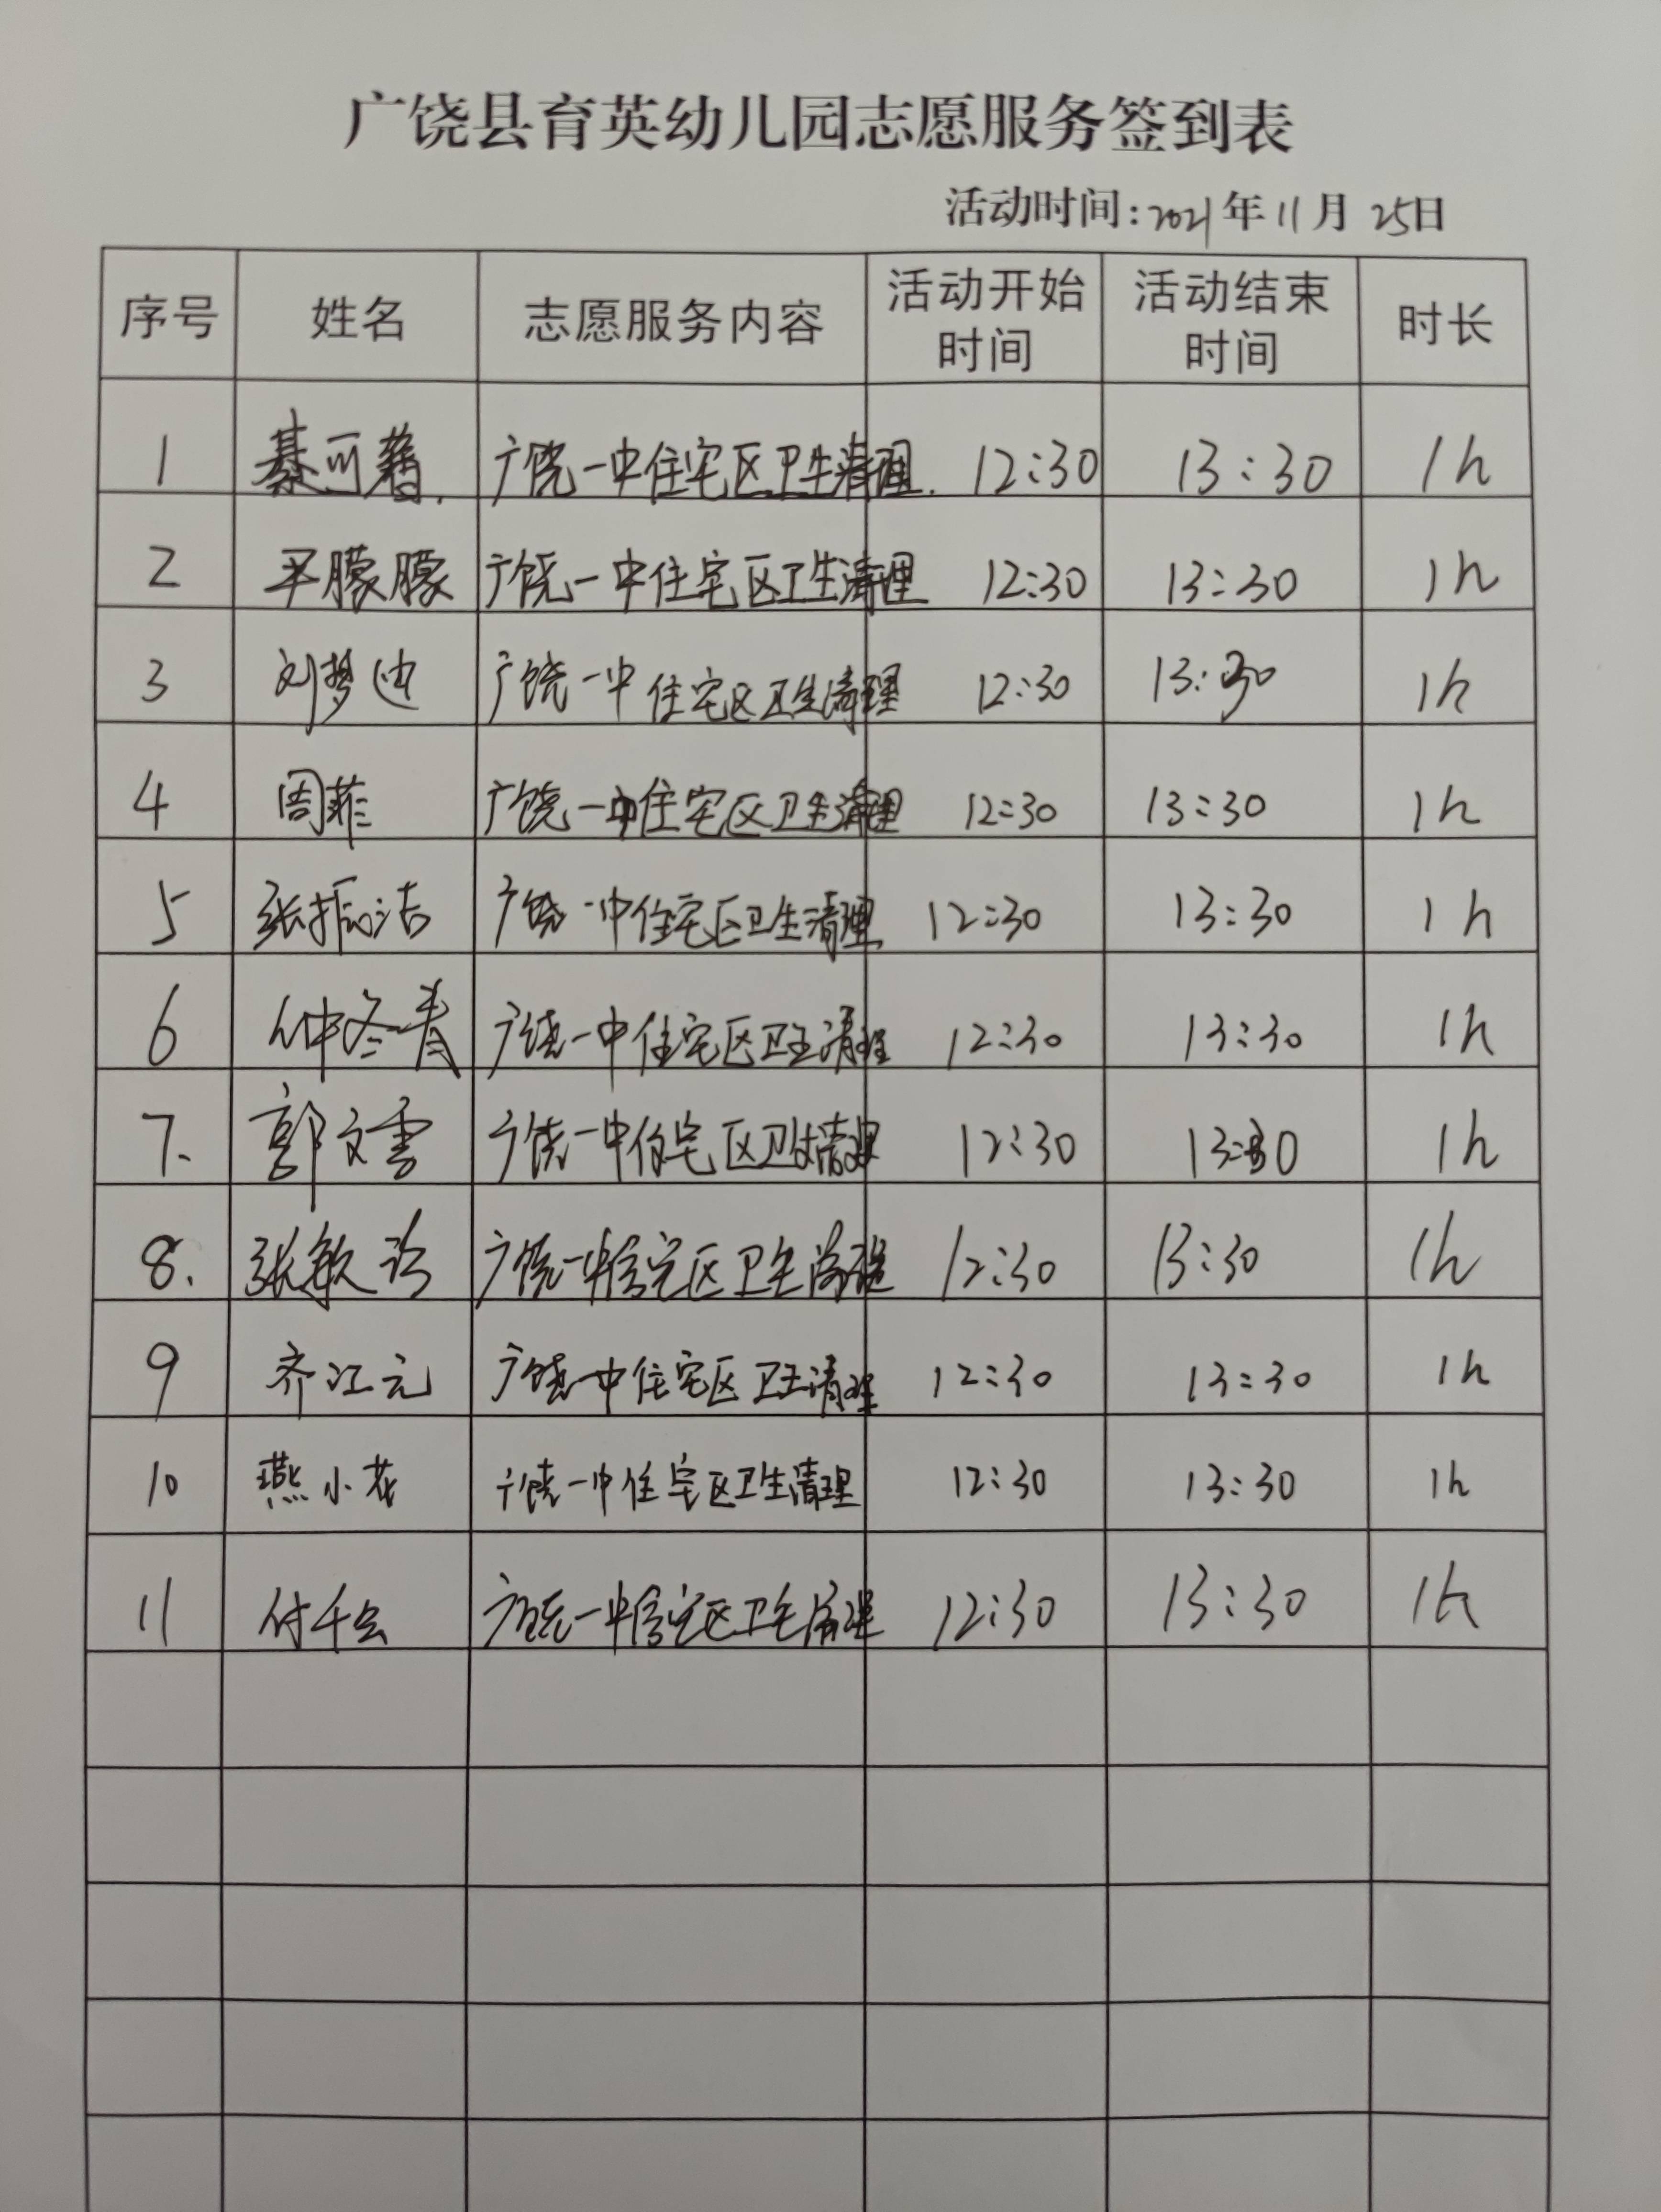 广饶县育英幼儿园志愿服务签到表
活动时间:2021年11月25日
序号 姓名 志愿服务内容 活动开始时间 活动结束时间 时长
1 綦可 广饶一中住宅区卫生清理. 12:30 13:30 1h
2 平朦朦 广饶一中住宅区卫生清理 12:30 13:30 1h
3 刘梦迪 广饶一中住宅区卫生清理 12:30 13:30 1h
4 周菲 广饶一中住宅区卫生清理 12:30 13:30 1h
5 张振洁 广饶一中住宅区卫生清理 12:30 13:30 1h
6 仲冬青 广饶一中住宅区卫生清理 12:30 13:30 1h
7. 郭文雪 广饶一中住宅区卫生清理 12:30 13:30 1h
8. 张敏 广饶一中住宅区卫生清理 12:30 13:30 1h
9 齐江元 广饶一中住宅区卫生清理 12:30 13:30 1h
10 燕小花 广饶一中住宅区卫生清理 12:30 13:30 1h
11 付千会 广饶一中住宅区卫生清理 12:30 13:30 1h